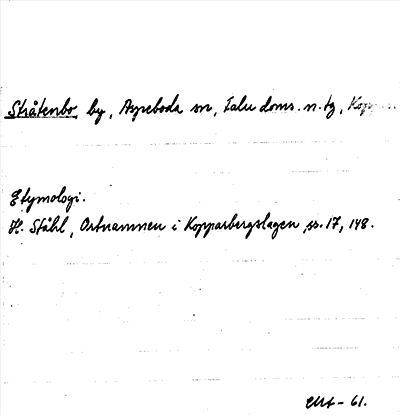 Stråtenbo, by, Aspeboda sn, Falu doms. n. tg, Kopp
Etymologi.
H. Ståhl, Ortnamnen i Kopparbergslagen ss. 17, 148.
-61.